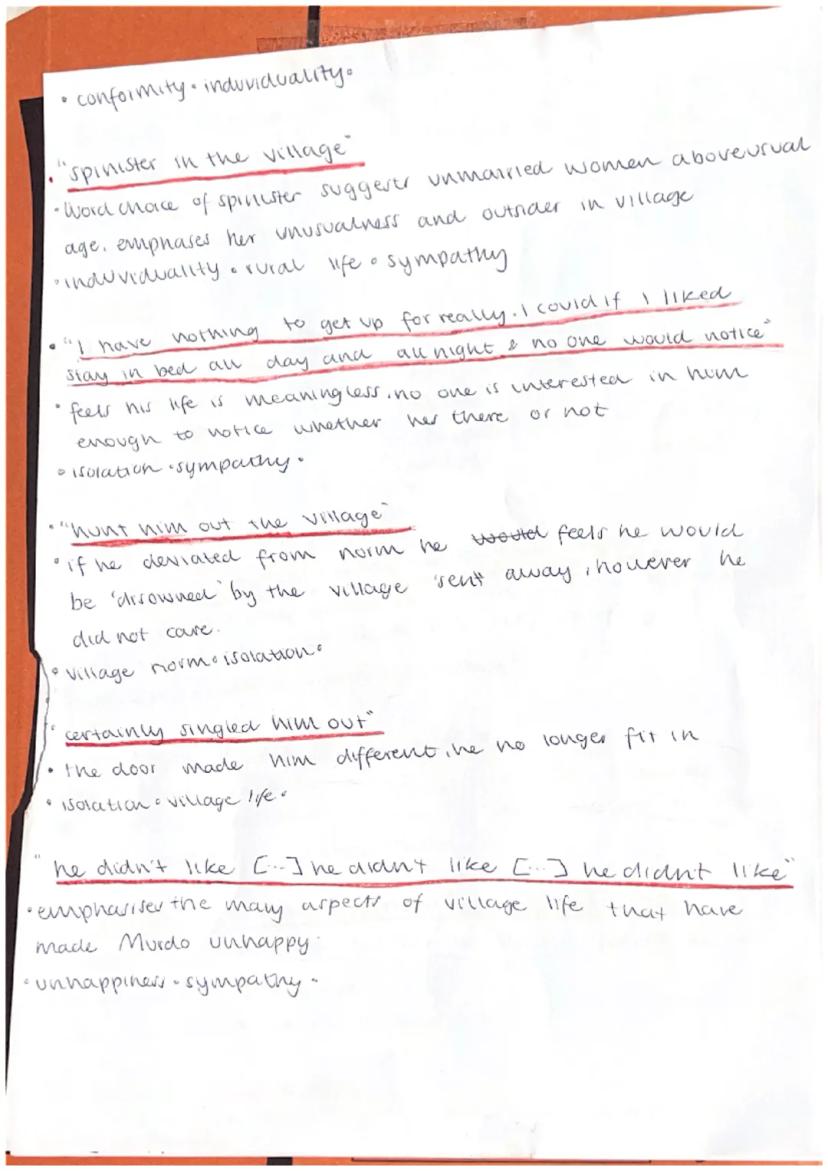 • conformity • induviduality •
• "spinister in the village"
• Word choice of spinister suggests unmarried women above usual
age. emphases her unusualness and outsider in village
• induviduality • rural life • sympathy
• "I have nothing to get up for really. I could if I liked
stay in bed all day and all night & no one would notice"
• feels his life is meaningless. no one is interested in him
enough to notice whether hes there or not
• isolation • sympathy •
• "hunt him out the village"
• if he deviated from norm he would feels he would
be 'disowned' by the village 'sent' away, however he
did not care.
• village norm • isolation •
" certainly singled him out"
• the door made him different, he no longer fit in
• isolation • village life •
" he didn't like [...] he didn't like [...] he didn't like"
• emphasises the many aspects of village life that have
made Murdo unhappy.
• unhappiness • sympathy •